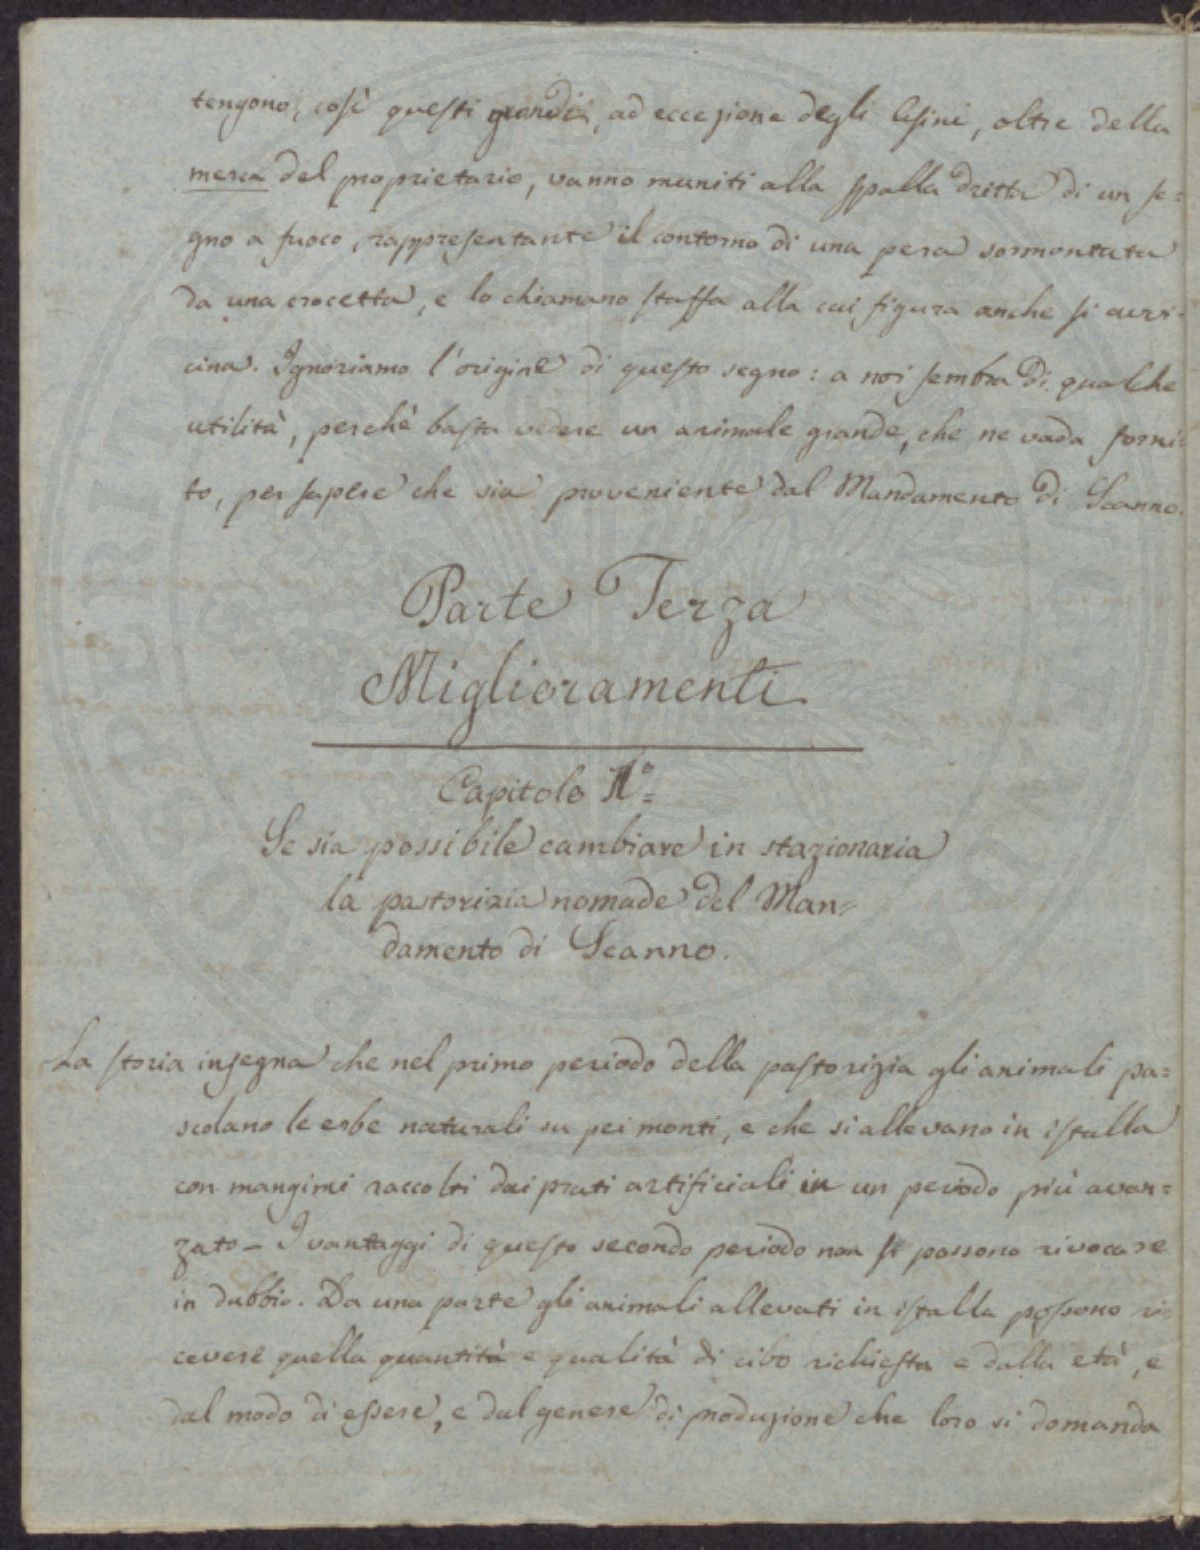 tengono, così questi grandi, ad eccezione degli Asini, oltre della
merca del proprietario, vanno muniti alla spalla dritta di un se=
gno a fuoco, rappresentante il contorno di una pera sormontata
da una crocetta, e lo chiamano staffa alla cui figura anche si avvi=
cina. Ignoriamo l'origine di questo segno: a noi sembra di qualche
utilità, perchè basta vedere un animale grande, che ne vada forni=
to, per sapere che sia proveniente dal Mandamento di Scanno.
Parte Terza
Miglioramenti
Capitolo 1.º
Se sia possibile cambiare in stazionaria
la pastorizia nomade del Man=
damento di Scanno.
La storia insegna che nel primo periodo della pastorizia gli animali pa=
scolano le erbe naturali su pei monti, e che si allevano in istalla
con mangimi raccolti dai prati artificiali in un periodo più avan=
zato – I vantaggi di questo secondo periodo non si possono rivocare
in dubbio. Da una parte gli animali allevati in istalla possono ri=
cevere quella quantità e qualità di cibo richiesta e dalla età, e
dal modo di essere, e dal genere di produzione che loro si domanda